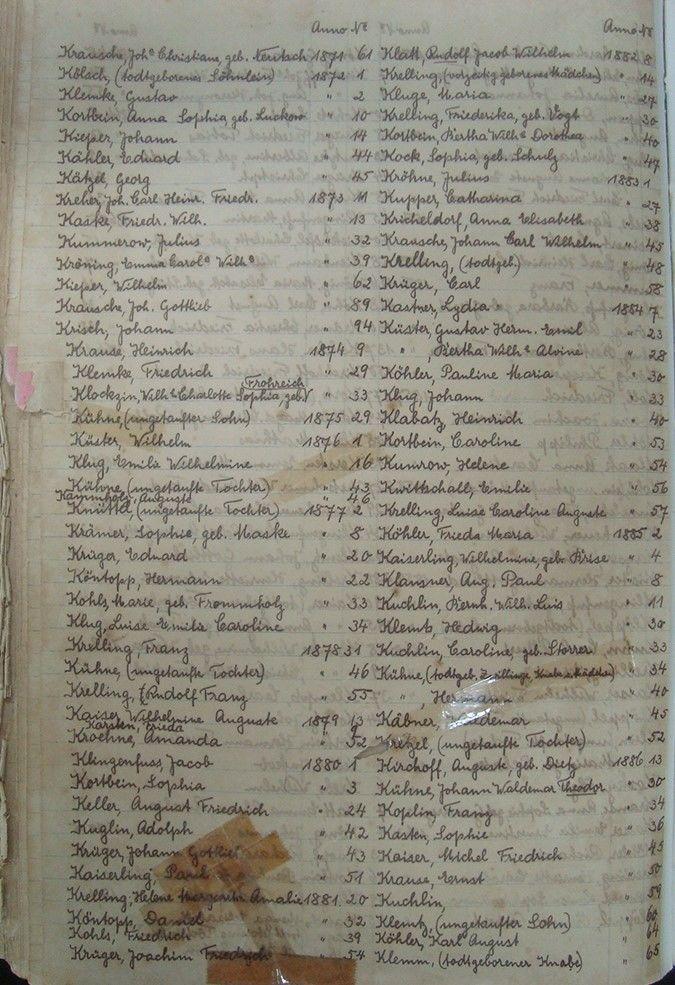 Anno №
Krausche, Joh.ᵉ Christiane, geb. Neutsch 1871 61
Kölsch, (todtgeborenes Söhnlein) 1872 1
Klemke, Gustav " 2
Kortbein, Anna Sophia, geb. Luckow " 10
Kieper, Johann " 14
Kähler, Eduard " 44
Kätzel, Georg " 45
Kreher, Joh. Carl Heinr. Friedr. 1873 11
Kaske, Friedr. Wilh. " 13
Kummerow, Julius " 32
Kröning, Emma Carolᵃ Wilhᵉ " 39
Kieper, Wilhelm " 62
Krausche, Joh. Gottlieb " 89
Krisch, Johann " 94
Krause, Heinrich 1874 9
Klemke, Friedrich " 29
Klockzin, Wilhᵉ Charlotte Sophia, geb. Frohreich " 33
Kühne, (ungetaufter Sohn) 1875 29
Küster, Wilhelm 1876 1
Klug, Emilie Wilhelmine " 16
Kühne, (ungetaufte Tochter) " 43
Kammholz, Auguste " 46
Knütta, (ungetaufte Tochter) 1877 2
Krämer, Sophie, geb. Maske " 8
Krüger, Eduard " 20
Köntopp, Hermann " 22
Kohls, Marie, geb. Frommholz " 33
Klug, Luise Emilie Caroline " 34
Krelling, Franz 1878 31
Kühne, (ungetaufte Tochter) " 46
Krelling, Rudolf Franz " 55
Kaiser, Wilhelmine Auguste 1879 13
Karsten, Frieda
Kroehne, Amanda " 52
Klingenfuss, Jacob 1880 1
Kortbein, Sophia " 3
Keller, August Friedrich " 24
Kuglin, Adolph " 42
Krüger, Johann Gottlieb " 43
Kaiserling, Paul " 51
Krelling, Helene Margarethe Amalie 1881 20
Köntopp, Daniel " 32
Kohls, Friedrich " 39
Krüger, Joachim Friedrich " 54
Anno №
Klatt, Rudolf Jacob Wilhelm 1882 8
Krelling, (vorzeitig geborenes Mädchen) " 14
Kluge, Maria " 27
Krelling, Friederika, geb. Vogt " 30
Kortbein, Bertha Wilhᵉ Dorothea " 40
Kock, Sophia, geb. Schulz " 47
Kröhne, Julius 1883 1
Kupper, Catharina " 27
Kricheldorf, Anna Elisabeth " 38
Krausche, Johann Carl Wilhelm " 45
Krelling, (todtgeb.) " 48
Krüger, Carl " 58
Kastner, Lydia 1884 7
Küster, Gustav Herm. Emil " 23
" , Bertha Wilhᵉ Alvine " 28
Köhler, Pauline Maria " 30
Klug, Johann " 33
Klabatz, Heinrich " 40
Kortbein, Caroline " 53
Kunrow, Helene " 54
Kwittschall, Emilie " 56
Krelling, Luise Caroline Auguste " 57
Köhler, Frieda Maria 1885 2
Kaiserling, Wilhelmine, geb. Brise " 4
Klausner, Aug. Paul " 8
Kuchlin, Bernh. Wilh. Luis " 11
Klemtz, Hedwig " 30
Kuchlin, Caroline, geb. Storrer " 33
Kühne, (todtgeb. Zwillinge, Knabe u. Mädchen) " 34
" , Hermann " 40
Käbner, Waldemar " 45
Kretzel, (ungetaufte Tochter) " 52
Kirchoff, Auguste, geb. Dietz 1886 13
Kühne, Johann Waldemar Theodor " 30
Koplin, Franz " 34
Kasten, Sophie " 36
Kaiser, Michel Friedrich " 45
Krause, Ernst " 50
Kuchlin, " 59
Klemtz, (ungetaufter Sohn) " 60
Köhler, Karl August " 64
Klemm, (todtgeborener Knabe) " 65